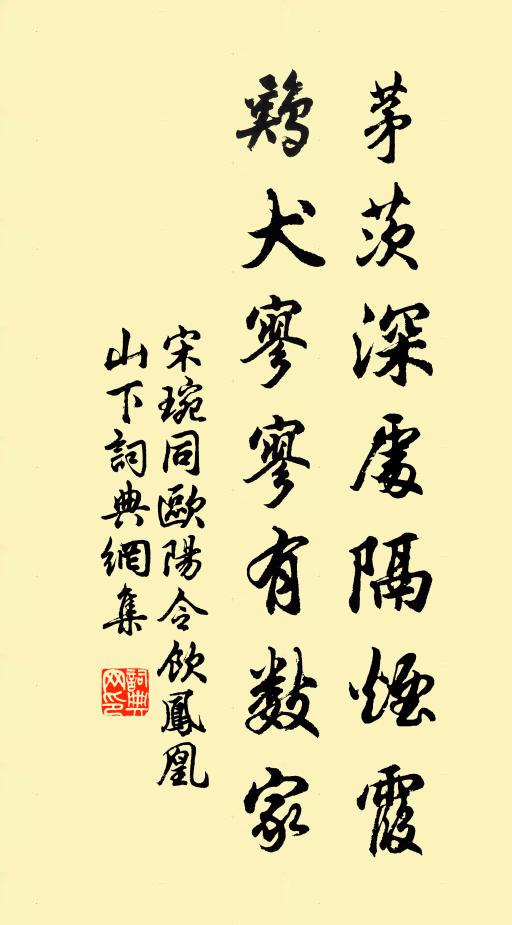 茅茨深處隔煙霞
鷄犬寥寥有數家
宋琬同歐陽令飲鳳凰
山下詞典網集
詞典
网印